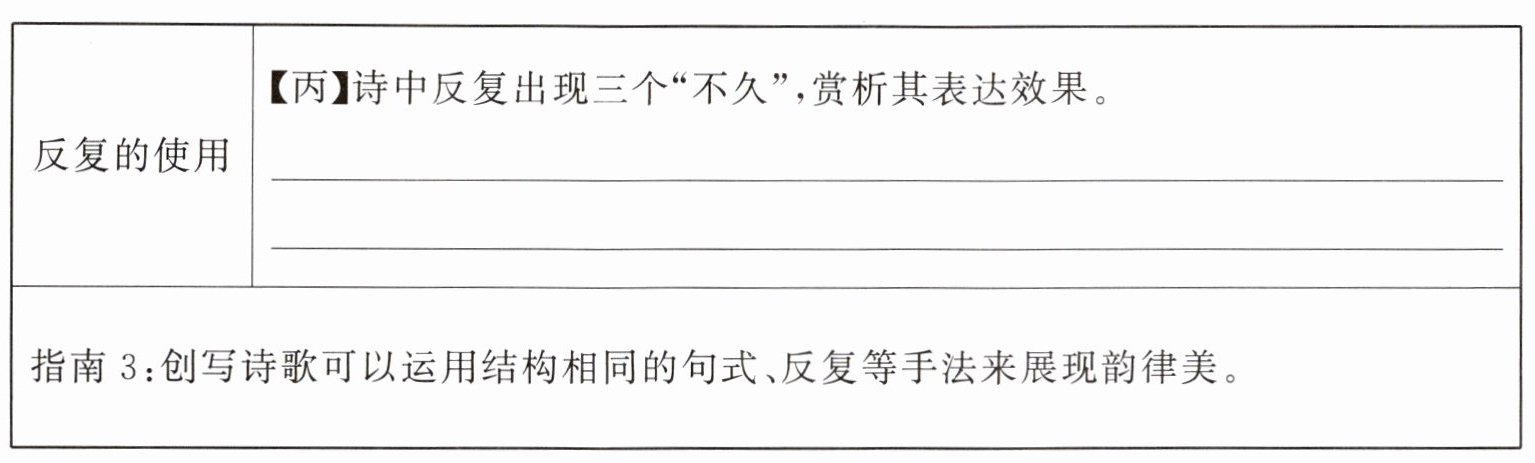 【丙】诗中反复出现三个“不久”,赏析其表达效果。
反复的使用
指南 3:创写诗歌可以运用结构相同的句式、反复等手法来展现韵律美。